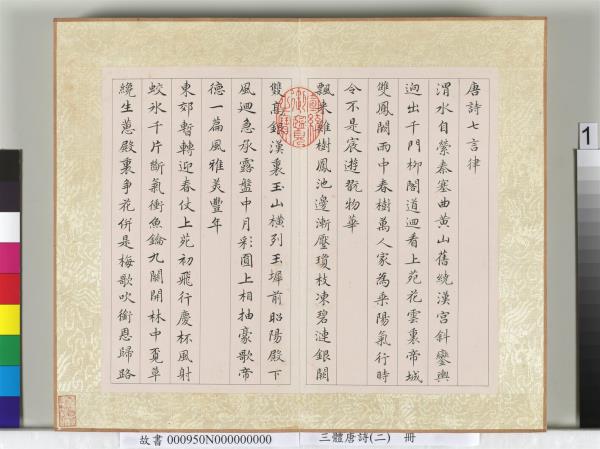 唐詩七言律
渭水自縈秦塞曲黄山舊繞漢宮斜鑾輿
迥出千門柳閣道迴看上苑花雲裏帝城
雙鳳闕雨中春樹萬人家為乘陽氣行時
令不是宸遊翫物華
飄來雞樹鳳池邊漸壓瓊枝凍碧漣銀闕
雙高銀漢裏玉山橫列玉墀前昭陽殿下
風迴急承露盤中月彩圓上相抽豪歌帝
德一篇風雅美豐年
東郊暫轉迎春仗上苑初飛行慶杯風射
蛟氷千片斷氣衝魚鑰九關開林中覓草
纔生蕙殿裏爭花併是梅歌吹銜恩歸路
故書 000950N000000000
三體唐詩(二) 冊
1